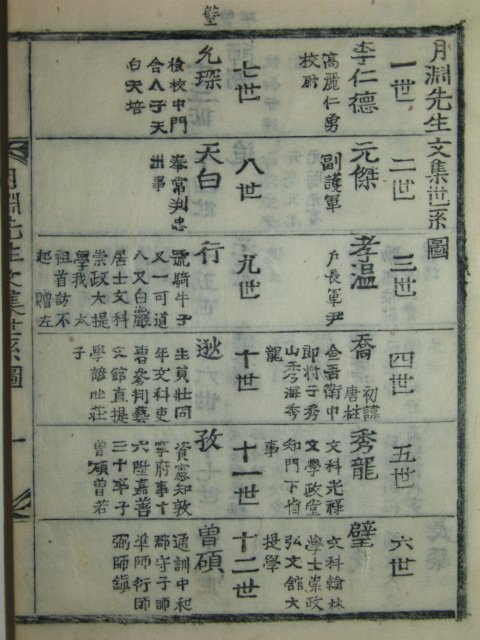 月淵先生文集世系圖
一世
李仁德
高麗仁勇
校尉
二世
元傑
副護軍
三世
孝溫
戶長軍尹
四世
喬
初諱
唐柱
金吾衛中
郎將子秀
山秀海秀
龍
五世
秀龍
文科光祿
文學政堂
知門下省
事
六世
璧
文科翰林
學士崇政
弘文館大
提學
璧
七世
允琛
檢校中門
合人子天
白天培
八世
天白
奉常判忠
州事
九世
行
號騎牛子
又一可道
人又白巖
居士文科
崇政大提
學我 太
祖首訪不
起 贈左
十世
逖
生員壯同
年文科吏
曹參判藝
文館直提
學諺世莊
子
十一世
孜
資憲知敦
寧府事十
六陞嘉善
三十卒子
曾碩曾若
十二世
曾碩
通訓中和
郡守子師
準師衍師
弼師鎭
月淵先生文集世系圖
一